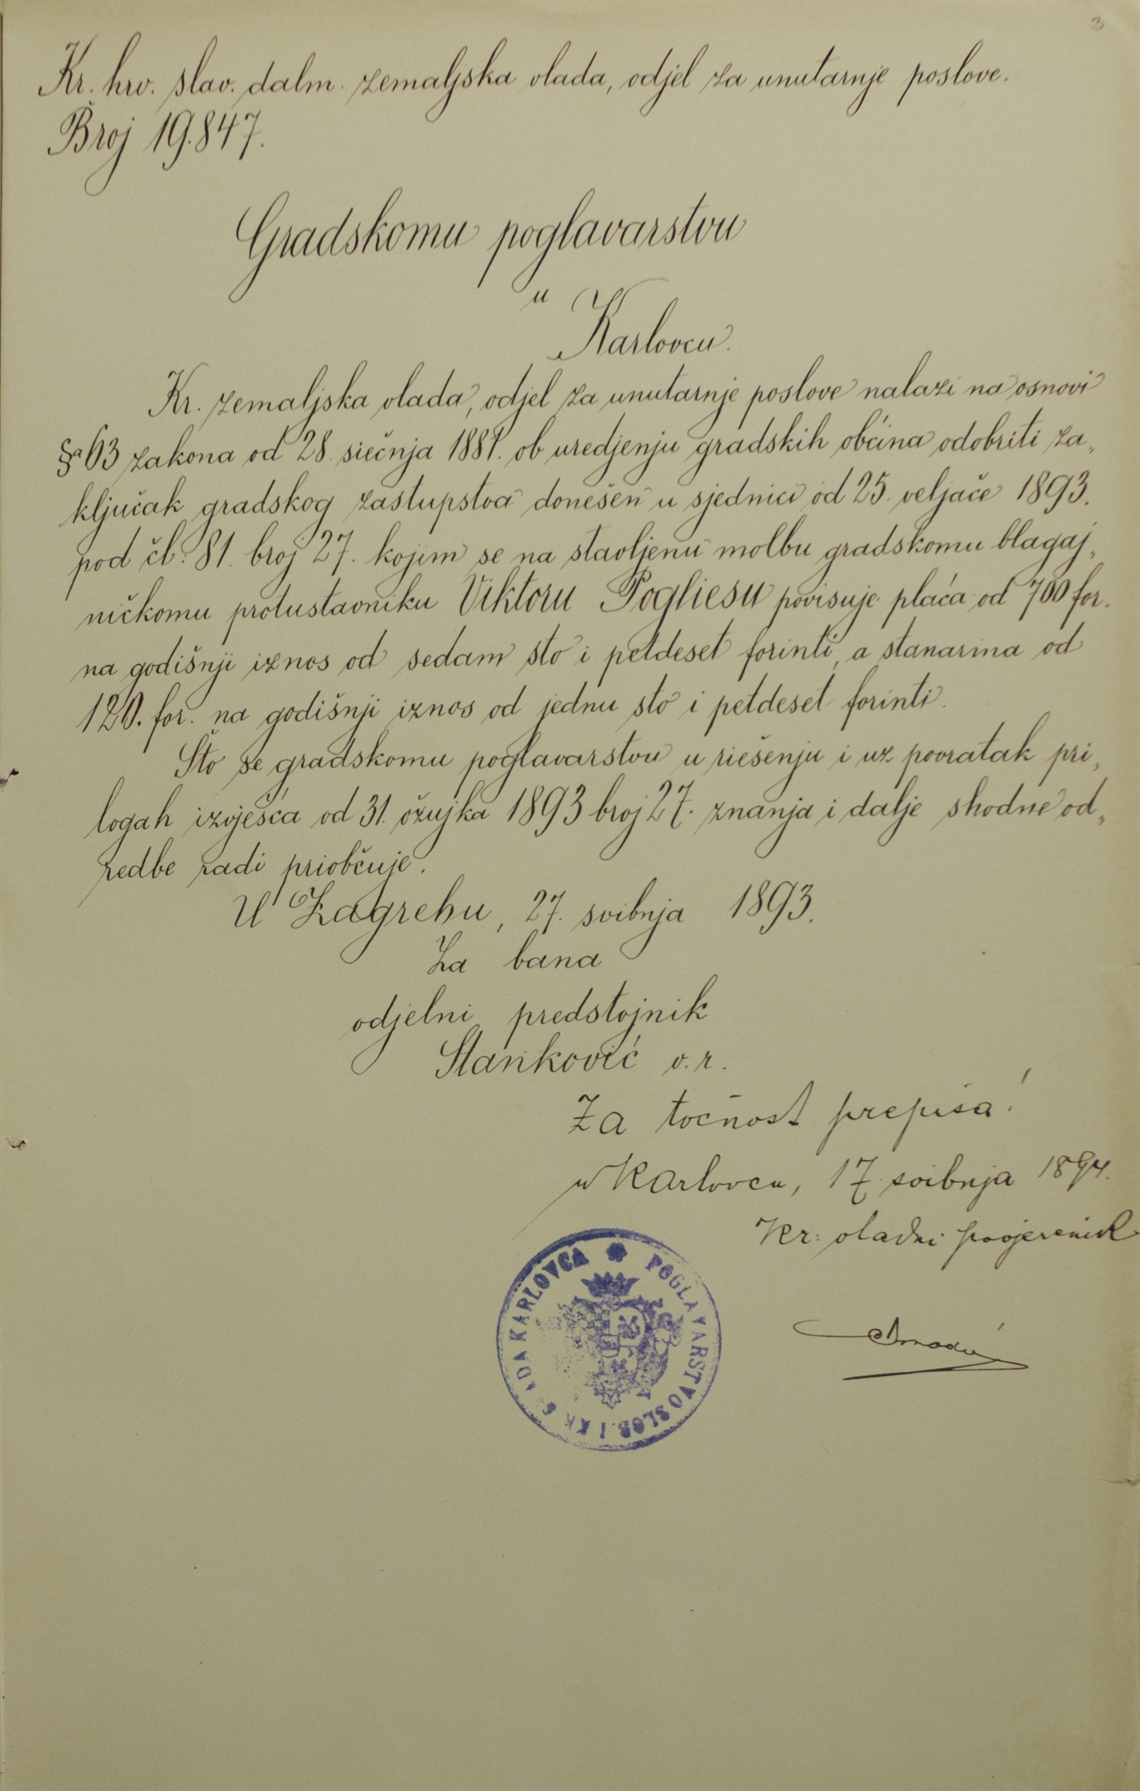 3
Kr. hrv. slav. dalm. zemaljska vlada, odjel za unutarnje poslove.
Broj 19.847.
Gradskomu poglavarstvu
u
Karlovcu.
Kr. zemaljska vlada, odjel za unutarnje poslove nalazi na osnovi
§a 63 zakona od 28. siečnja 1881. ob uredjenju gradskih obćina odobriti za„
ključak gradskog zastupstva donešen u sjednici od 25. veljače 1893.
pod čl. 81. broj 27. kojim se na stavljenu molbu gradskomu blagaj„
ničkomu protustavniku Viktoru Pogliesu povisuje plaća od 700 for.
na godišnji iznos od sedam sto i petdeset forinti, a stanarina od
120. for. na godišnji iznos od jednu sto i petdeset forinti.
Što se gradskomu poglavarstvu u riešenju i uz povratak pri„
logah izvješća od 31. ožujka 1893 broj 27. znanja i dalje shodne od„
redbe radi priobčuje.
U Zagrebu, 27. svibnja 1893.
Za bana
odjelni predstojnik
Stanković v. r.
Za točnost prepisa!
u Karlovcu, 17 svibnja 1894.
Kr: vladni povjerenik
POGLAVARSTVO SLOB. I KR. GRADA KARLOVCA